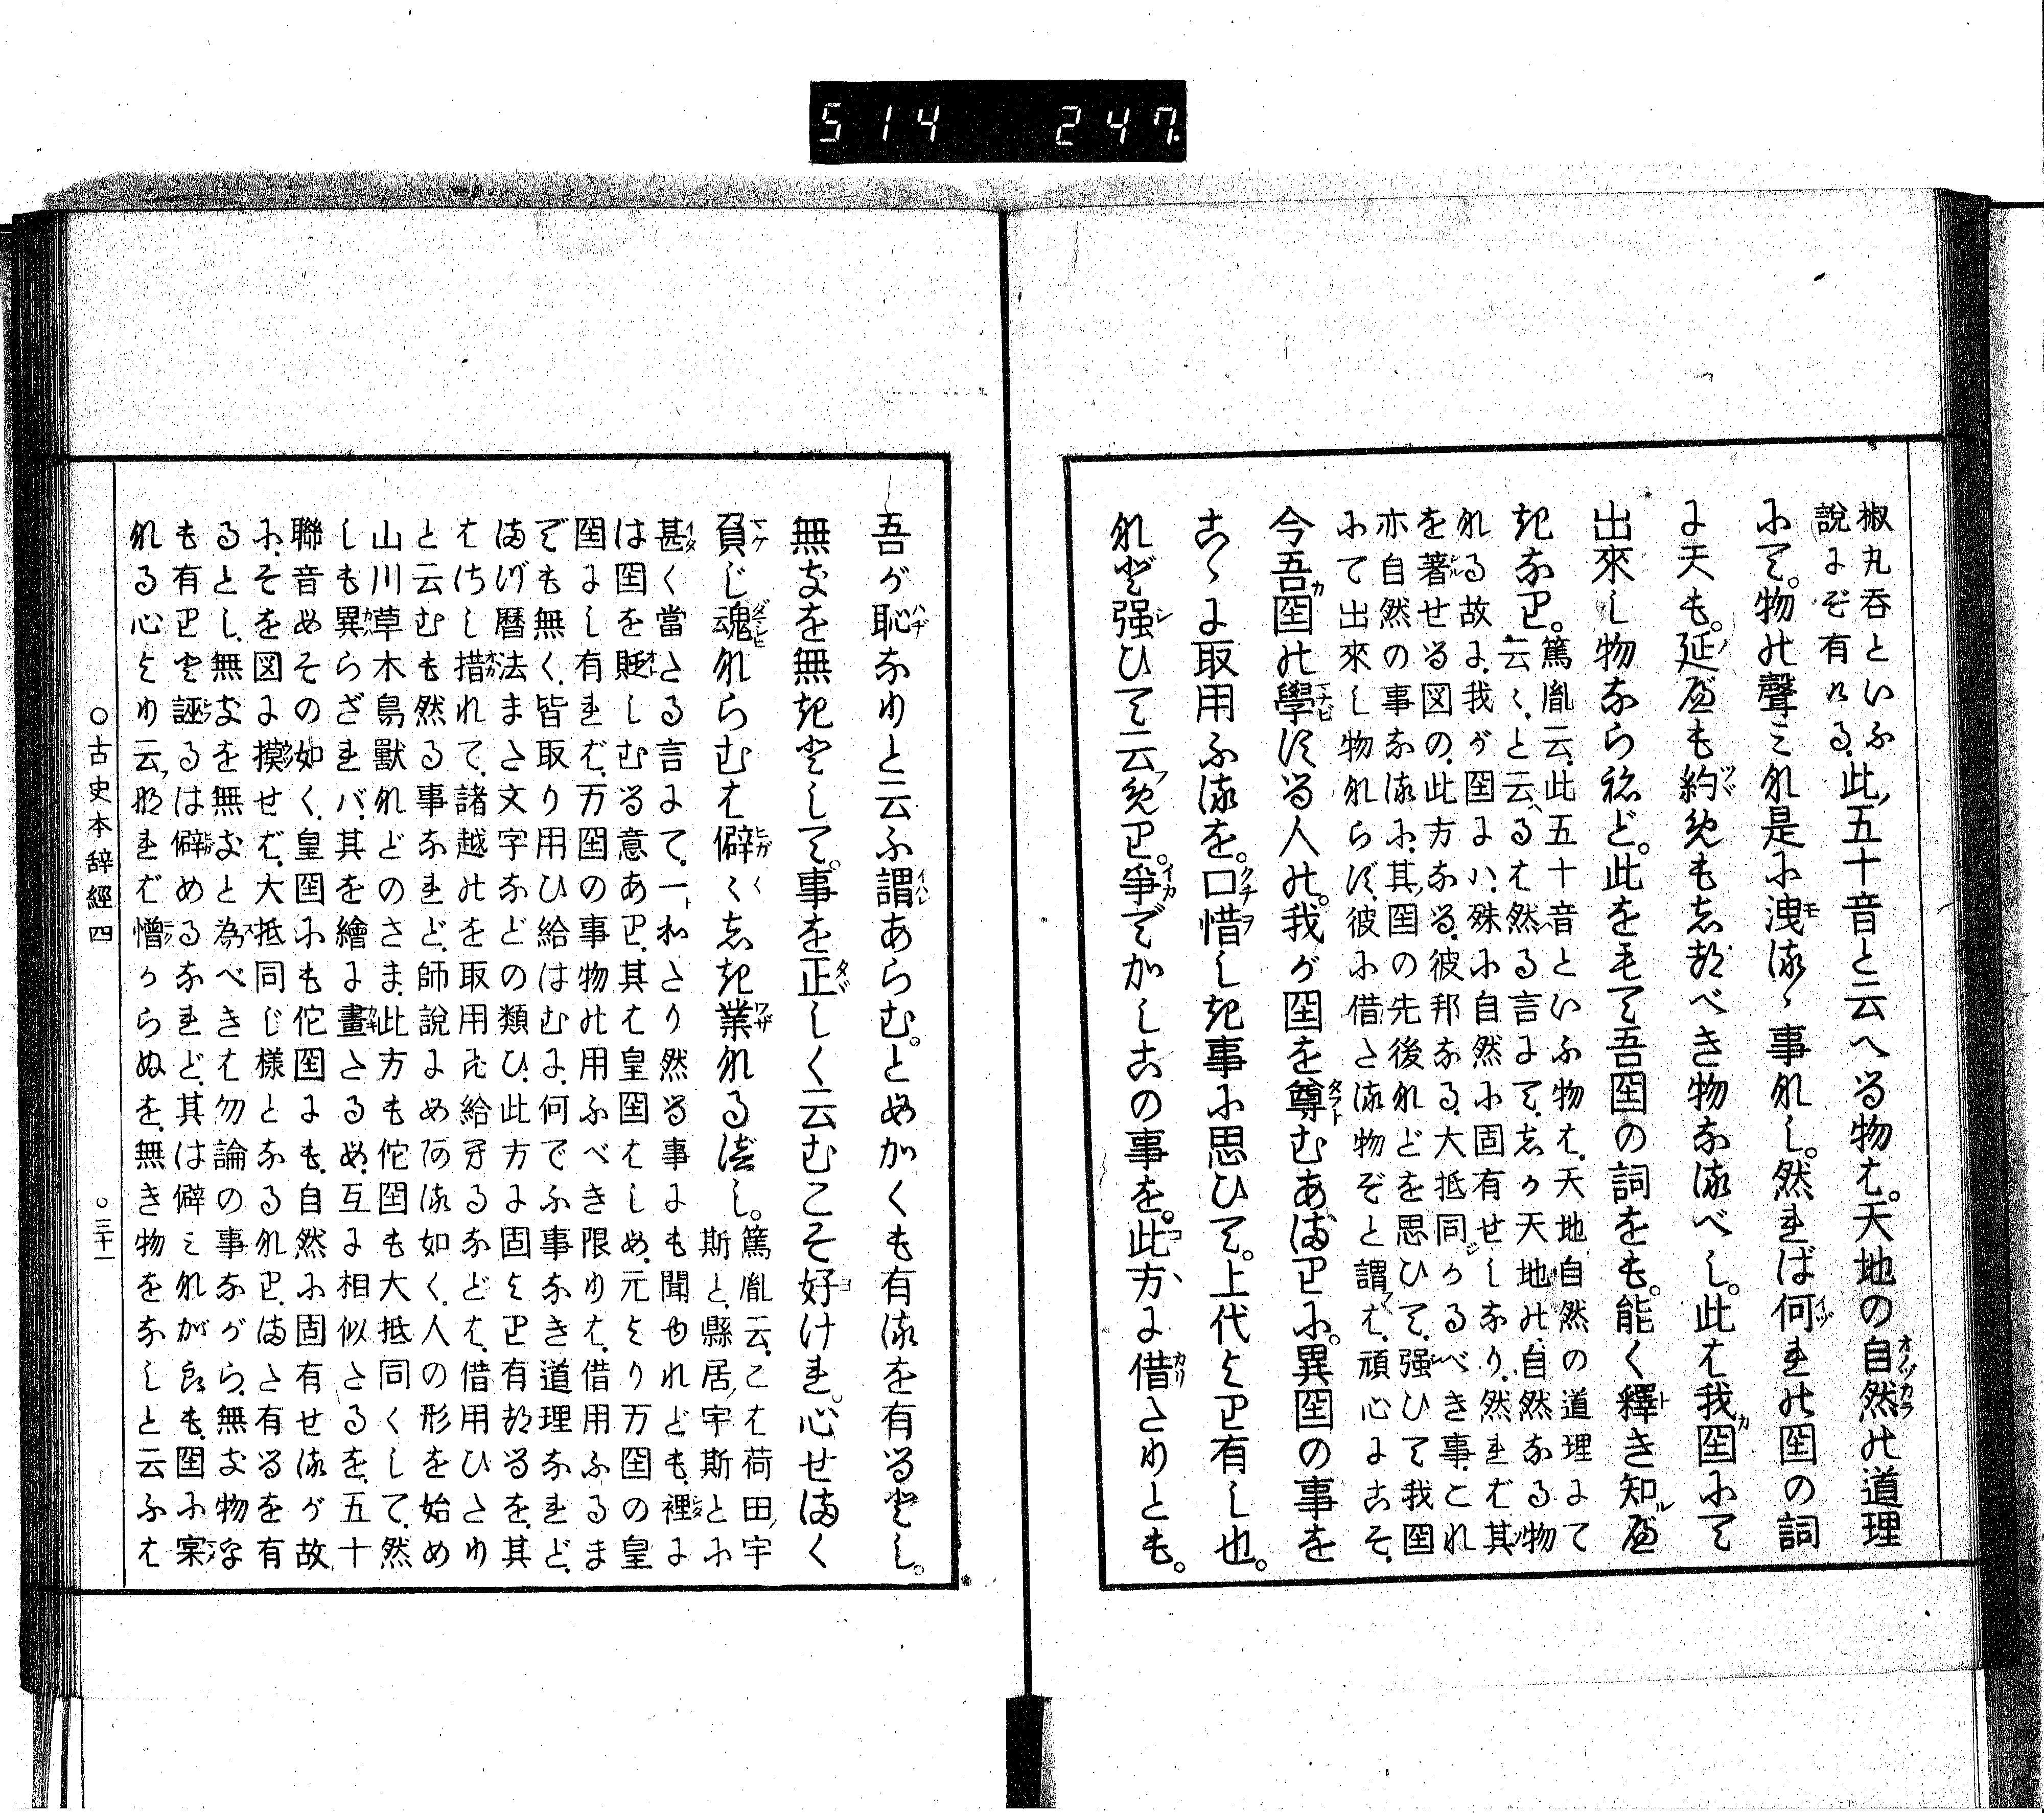 514 247.
椒丸呑といふ
説にぞ有ける。此五十音と云へる物は。天地の自然の道理
にて。物の聲ミな是に洩るゝ事なし。然れば何れの国の詞
に天も。延ばも約めもしつべき物なるべし。此は我国にて
出來し物ならねど。此をもて吾国の詞をも。能く釋き知ルば
きなり。篤胤云、此五十音といふ物は、天地自然の道理にて
云々、と云へるは然る言にて、しか天地の、自然なる物
なる故に、我が国にハ、殊に自然に固有せしなり、然れば其
を著せる図の、此方なる、彼邦なる、大抵同じかるべき事、これ
亦自然の事なるに、其国の先後などを思ひて、强ひて我国
にて出來し物ならず、彼に借たる物ぞと謂はゞ、頑心にこそ、
今吾国の學する人の。我が国を尊むあまりに。異国の事を
こゝに取用ふるを。口惜しき事に思ひて。上代より有し也。
など强ひて云めり。爭でかしこの事を。此方に借たりとも。
吾が恥なりと云ふ謂あらむ。とまれかくも有るを有るとし。
無きを無きとして。事を正しく云むこそ好けれ。心せまく
負じ魂ならむは僻〱しき業なるべし。篤胤云、こは荷田宇
斯と、縣居宇斯とに
甚く當たる言にて、一わたり然る事にも聞ゆれども、裡に
は国を貶しむる意あり、其は皇国はしも、元より万国の皇
国にし有れば、万国の事物の用ふべき限りは、借用ふるま
でも無く、皆取り用ひ給はむに、何でふ事なき道理なれど、
まづ暦法また文字などの類ひ、此方に固より有つるを、其
はもし措れて、諸越のを取用ひ給へるなどは、借用ひたり
と云むも然る事なれど、師説にも云る如く、人の形を始め
山川草木鳥獸などのさま、此方も佗国も大抵同くして、然
しも異らざれバ、其を繪に畫たるも、互に相似たるを、五十
聯音もその如く、皇国にも佗国にも、自然に固有せるが故
に、そを図に摸せば、大抵同じ様となるなり、また有るを有
るとし、無きを無きと為べきは勿論の事ながら、無き物を
も有りと誣るは僻めるなれど、其は僻ミながらも、国に案
なる心より云なれば憎からぬを、無き物をなしと云ふは
○古史本辞經四
○三十一